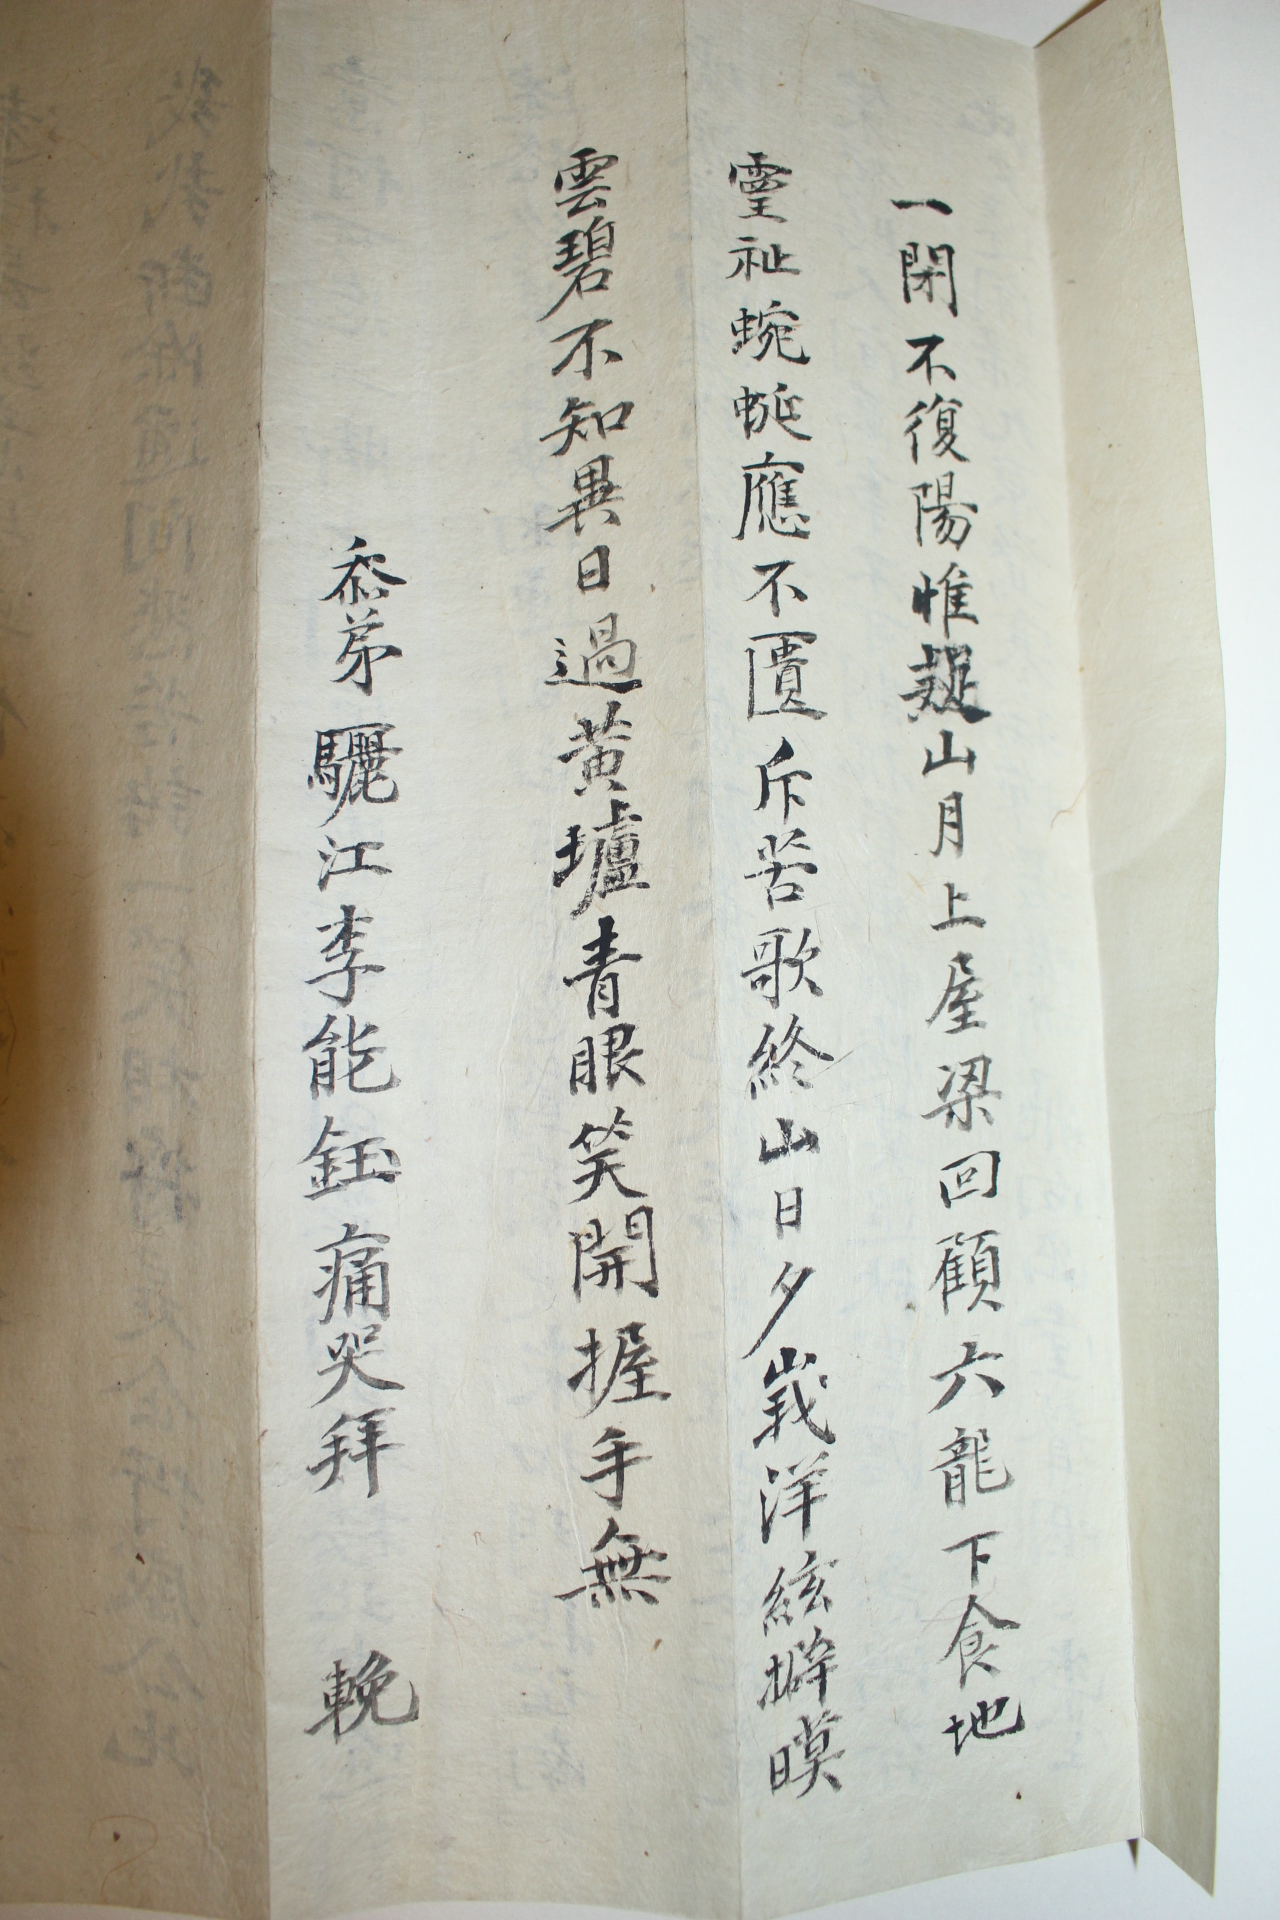 一閉不復陽惟疑山月上屋梁回顧六龍下食地
靈祉蜿蜒應不匱斥苦歌終山日夕峩洋絃擗暯
雲碧不知異日過黃壚青眼笑開握手無
忝弟驪江李能鈺痛哭拜 輓